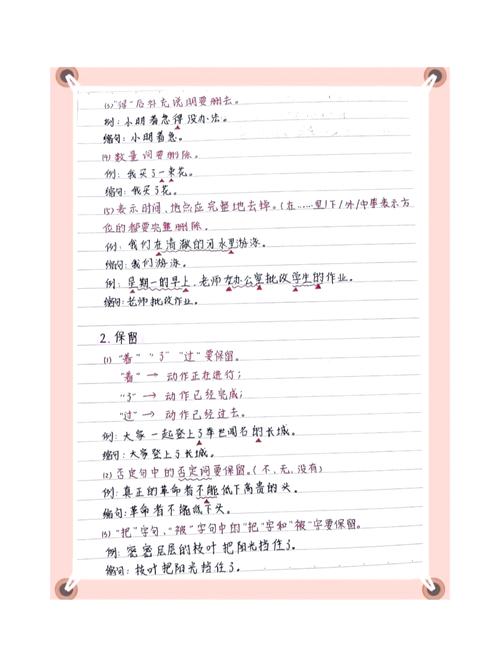 (3)“得”后补充说明要删去。
例：小明着急得没办法。
缩句：小明着急。
(4)数量词要删除。
例：我买了一束花。
缩句：我买了花。
(5)表示时间、地点应完整地去掉。(在……里/下/外/中等表示方
位的都要完整删除。
例：我们在清澈的河水里游泳。
缩句：我们游泳。
例：星期一的早上，老师在办公室批改学生的作业。
缩句：老师批改作业。
2.保留
(1)“着”“了”“过”要保留。
“着”→动作正在进行；
“了”→动作已经完成；
“过”→动作已经过去。
例：大家一起登上了举世闻名的长城。
缩句：大家登上了长城。
(2)否定句中的否定词要保留。(不、无、没有)
例：真正的革命者不能低下高贵的头。
缩句：革命者不能低下头。
(3)“把”字句、“被”字句中的“把”字和“被”字要保留。
例：密密层层的枝叶把阳光挡住了。
缩句：枝叶把阳光挡住了。